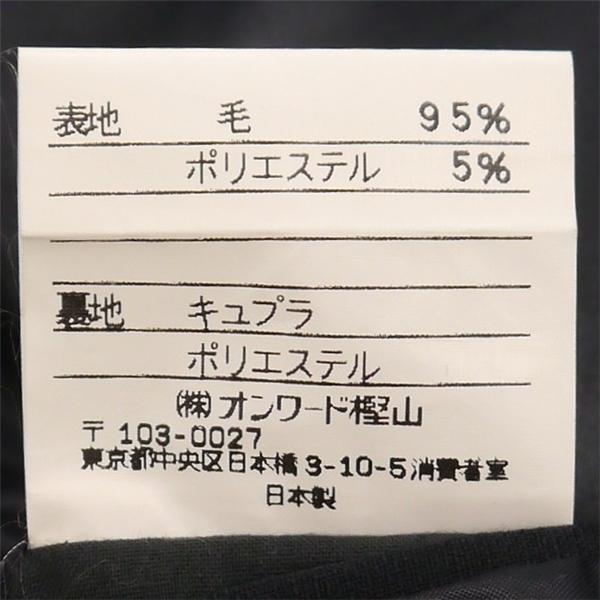 表地 毛 95%
ポリエステル 5%
裏地 キュプラ
ポリエステル
㈱オンワード樫山
〒103-0027
東京都中央区日本橋3-10-5消費者室
日本製